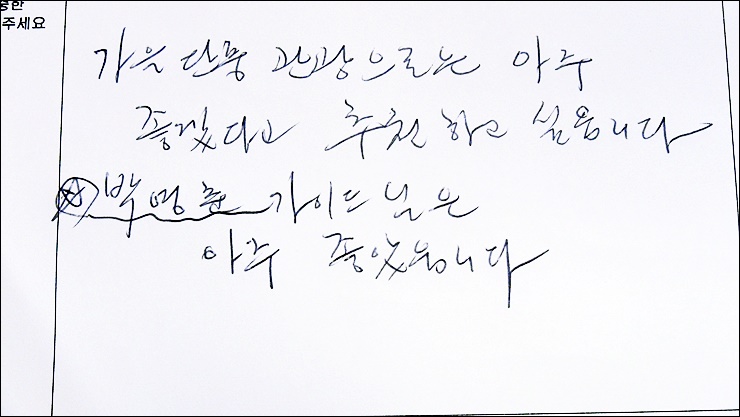 주세요
가을 단풍 관광으로는 아주
좋겠다고 추천하고 싶읍니다
박명춘 가이드님은
아주 좋았읍니다